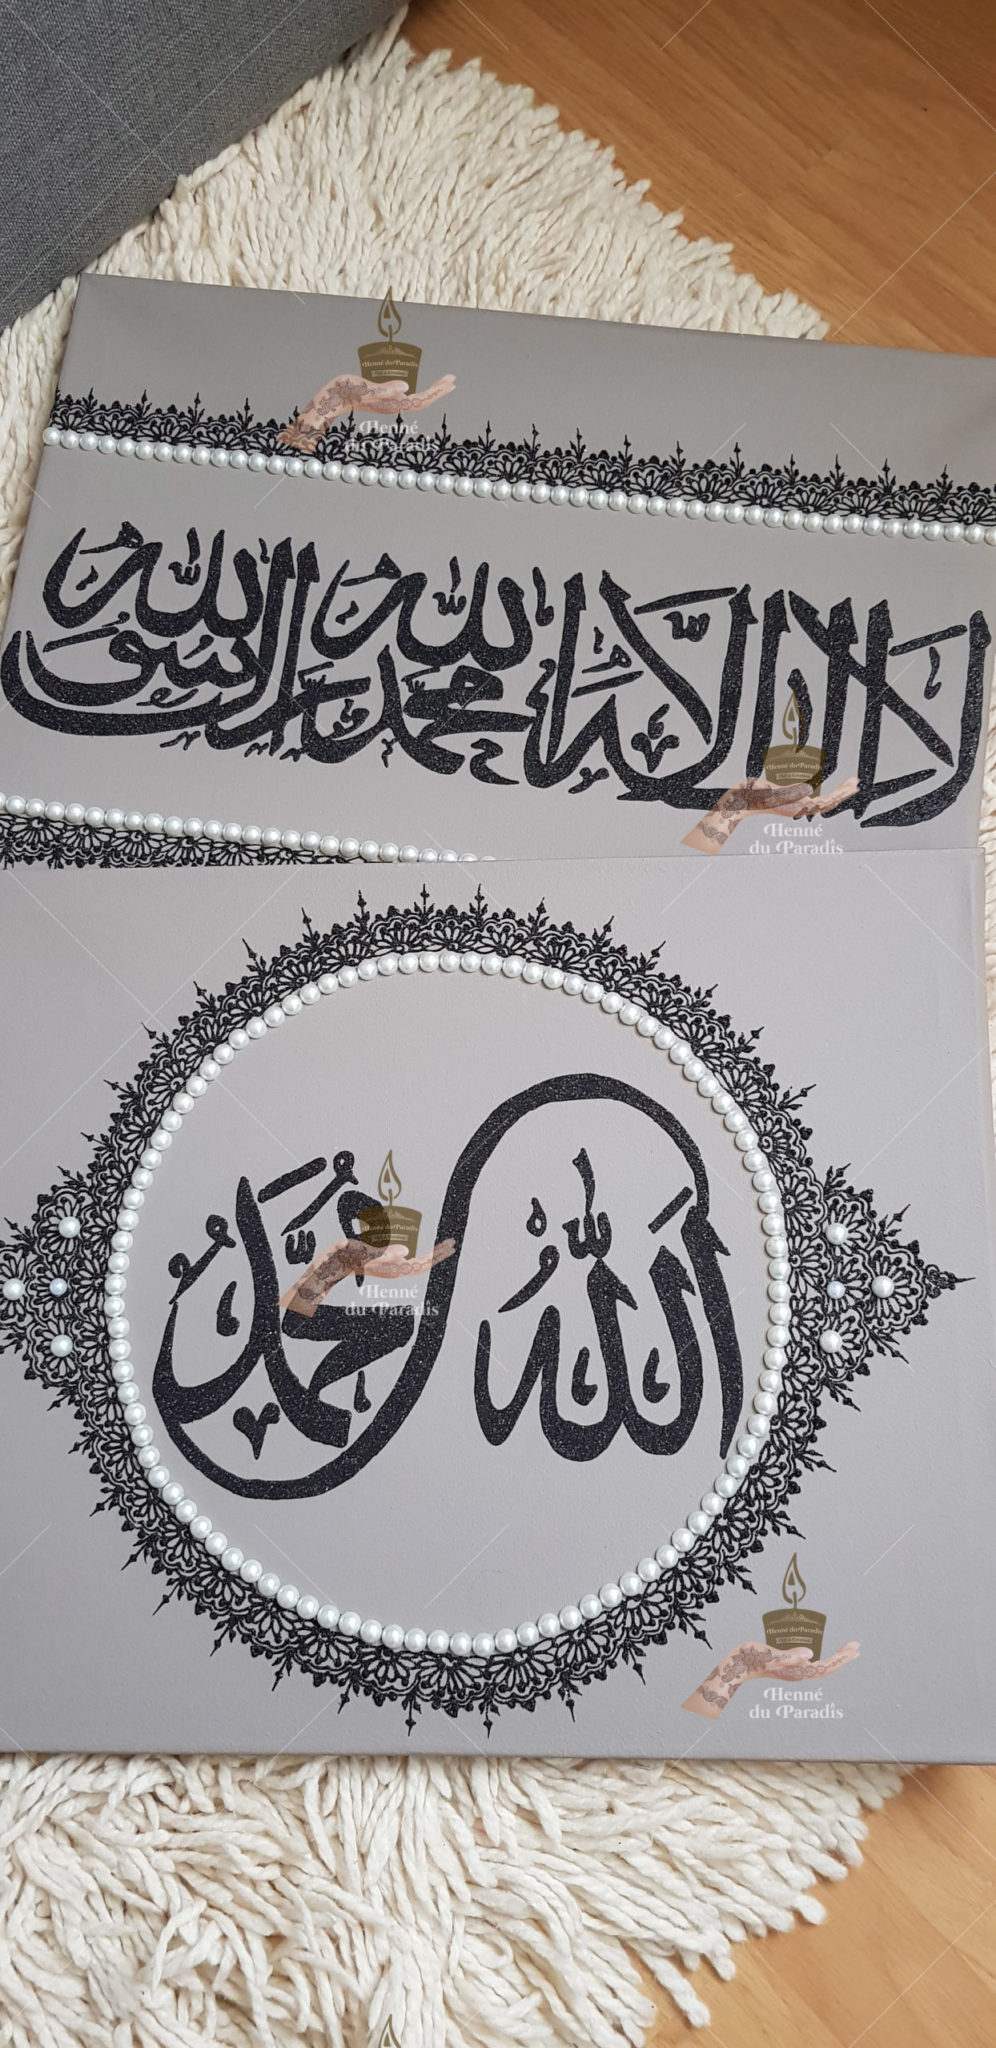 لا إله إلا الله محمد رسول الله
الله محمد
Henné du Paradis
Henné
du Paradis
Henné du Paradis
Henné
du Paradis
Henné du Paradis
Henné
du Paradis
Henné du Paradis
Henné
du Paradis